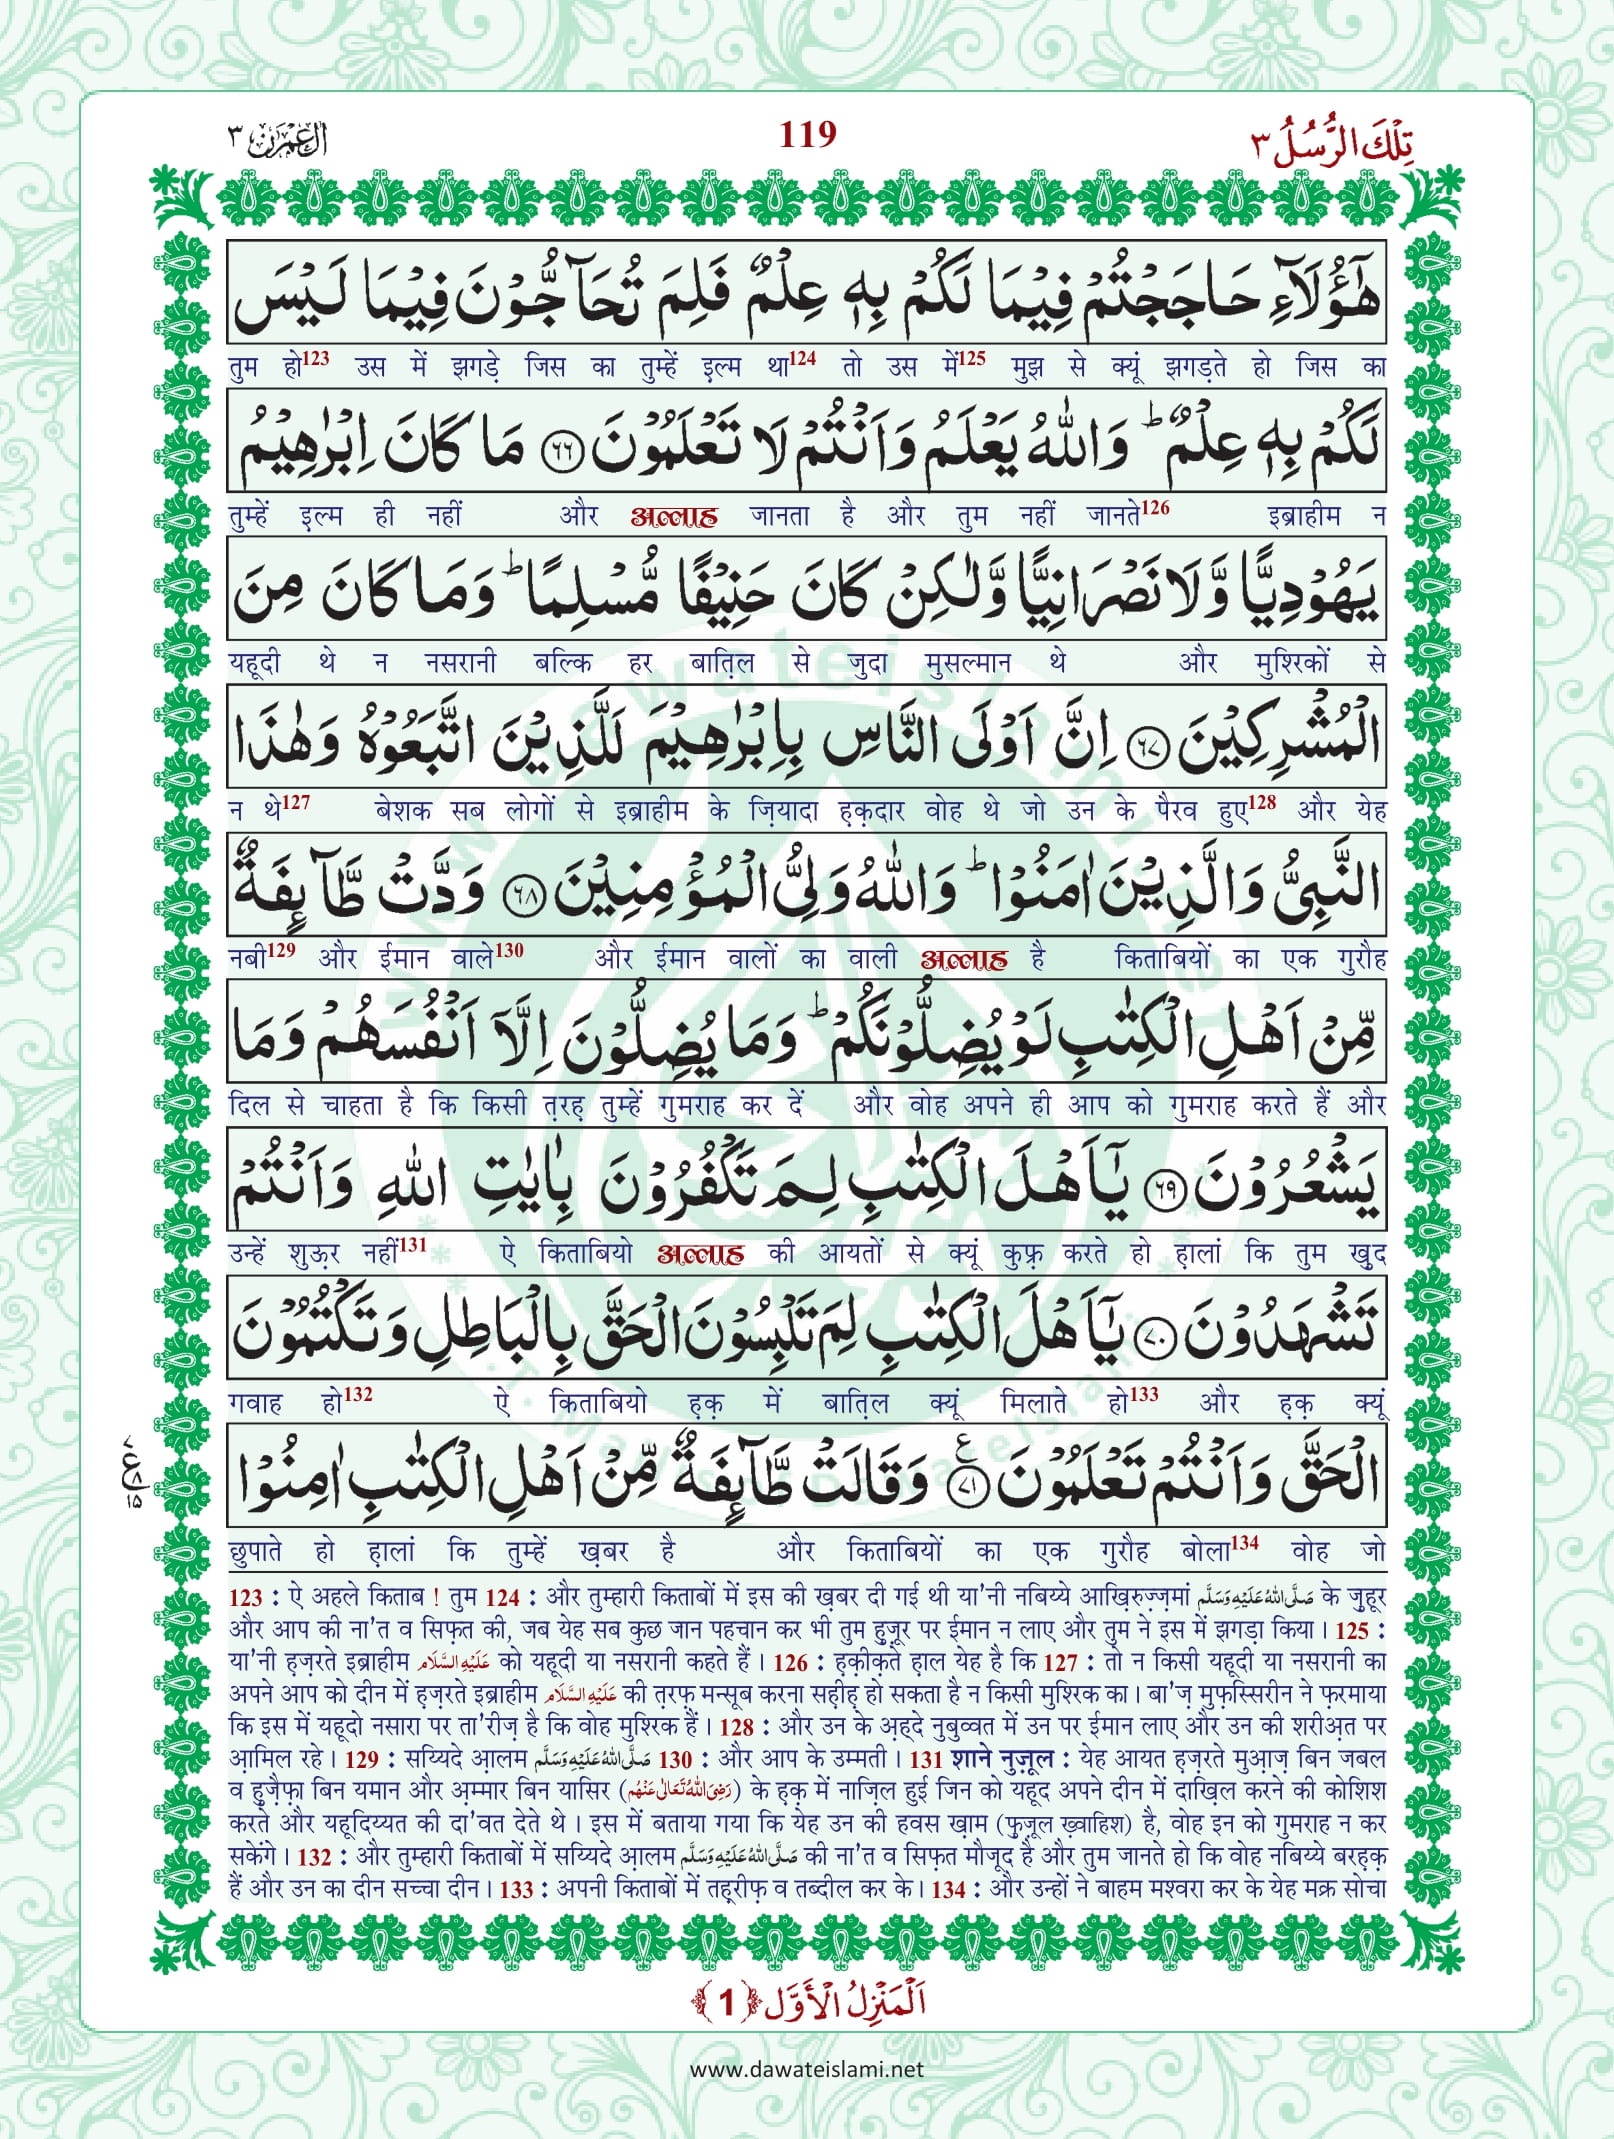 اٰل عمرٰن ٣
119
تِلْكَ الرُّسُلُ ٣
هٰۤؤُلَآءِ حَاجَجْتُمْ فِیْمَا لَكُمْ بِهٖ عِلْمٌ فَلِمَ تُحَآجُّوْنَ فِیْمَا لَیْسَ
तुम हो123 उस में झगड़े जिस का तुम्हें इल्म था124 तो उस में125 मुझ से क्यूं झगड़ते हो जिस का
لَكُمْ بِهٖ عِلْمٌؕ وَاللّٰهُ یَعْلَمُ وَاَنْتُمْ لَا تَعْلَمُوْنَ ﴿٦٦﴾ مَا كَانَ اِبْرٰهِیْمُ
तुम्हें इल्म ही नहीं और अल्लाह जानता है और तुम नहीं जानते126 इब्राहीम न
یَهُوْدِیًّا وَّلَا نَصْرَانِیًّا وَّلٰكِنْ كَانَ حَنِیْفًا مُّسْلِمًاؕ وَمَا كَانَ مِنَ
यहूदी थे न नसरानी बल्कि हर बात़िल से जुदा मुसल्मान थे और मुश्रिकों से
الْمُشْرِكِیْنَ ﴿٦٧﴾ اِنَّ اَوْلَی النَّاسِ بِاِبْرٰهِیْمَ لَلَّذِیْنَ اتَّبَعُوْهُ وَهٰذَا
न थे127 बेशक सब लोगों से इब्राहीम के ज़ियादा ह़क़दार वोह थे जो उन के पैरव हुए128 और येह
النَّبِیُّ وَالَّذِیْنَ اٰمَنُوْاؕ وَاللّٰهُ وَلِیُّ الْمُؤْمِنِیْنَ ﴿٦٨﴾ وَدَّتْ طَّآىِٕفَةٌ
नबी129 और ईमान वाले130 और ईमान वालों का वाली अल्लाह है किताबियों का एक गुरौह
مِّنْ اَهْلِ الْكِتٰبِ لَوْ یُضِلُّوْنَكُمْؕ وَمَا یُضِلُّوْنَ اِلَّاۤ اَنْفُسَهُمْ وَمَا
दिल से चाहता है कि किसी त़रह़ तुम्हें गुमराह कर दें और वोह अपने ही आप को गुमराह करते हैं और
یَشْعُرُوْنَ ﴿٦٩﴾ یٰۤاَهْلَ الْكِتٰبِ لِمَ تَكْفُرُوْنَ بِاٰیٰتِ اللّٰهِ وَاَنْتُمْ
उन्हें शुऊ़र नहीं131 ऐ किताबियो अल्लाह की आयतों से क्यूं कुफ़्र करते हो ह़ालां कि तुम खुद
تَشْهَدُوْنَ ﴿٧٠﴾ یٰۤاَهْلَ الْكِتٰبِ لِمَ تَلْبِسُوْنَ الْحَقَّ بِالْبَاطِلِ وَتَكْتُمُوْنَ
गवाह हो132 ऐ किताबियो ह़क़ में बात़िल क्यूं मिलाते हो133 और ह़क़ क्यूं
الْحَقَّ وَاَنْتُمْ تَعْلَمُوْنَ ﴿٧١﴾ ع وَقَالَتْ طَّآىِٕفَةٌ مِّنْ اَهْلِ الْكِتٰبِ اٰمِنُوْا
٧ ع ٨ ١٥
छुपाते हो ह़ालां कि तुम्हें ख़बर है और किताबियों का एक गुरौह बोला134 वोह जो
123 : ऐ अहले किताब ! तुम 124 : और तुम्हारी किताबों में इस की ख़बर दी गई थी या'नी नबिय्ये आख़िरुज़्ज़मां صَلَّى اللهُ عَلَيْهِ وَسَلَّم के ज़ुहूर
और आप की ना'त व सिफ़त की, जब येह सब कुछ जान पहचान कर भी तुम हुज़ूर पर ईमान न लाए और तुम ने इस में झगड़ा किया । 125 :
या'नी ह़ज़रते इब्राहीम عَلَيْهِ السَّلَام को यहूदी या नसरानी कहते हैं । 126 : ह़क़ीक़ते ह़ाल येह है कि 127 : तो न किसी यहूदी या नसरानी का
अपने आप को दीन में ह़ज़रते इब्राहीम عَلَيْهِ السَّلَام की त़रफ़ मन्सूब करना सह़ीह़ हो सकता है न किसी मुश्रिक का । बा'ज़ मुफ़स्सिरीन ने फ़रमाया
कि इस में यहूदो नसारा पर ता'रीज़ है कि वोह मुश्रिक हैं । 128 : और उन के अ़ह्दे नुबुव्वत में उन पर ईमान लाए और उन की शरीअ़त पर
आ़मिल रहे । 129 : सय्यिदे आ़लम صَلَّى اللهُ عَلَيْهِ وَسَلَّم 130 : और आप के उम्मती । 131 शाने नुज़ूल : येह आयत ह़ज़रते मुआ़ज़ बिन जबल
व हुज़ैफ़ा बिन यमान और अ़म्मार बिन यासिर (رَضِىَ اللهُ تَعَالٰى عَنْهُم) के ह़क़ में नाज़िल हुई जिन को यहूद अपने दीन में दाख़िल करने की कोशिश
करते और यहूदिय्यत की दा'वत देते थे । इस में बताया गया कि येह उन की हवस ख़ाम (फ़ुज़ूल ख़्वाहिश) है, वोह इन को गुमराह न कर
सकेंगे । 132 : और तुम्हारी किताबों में सय्यिदे आ़लम صَلَّى اللهُ عَلَيْهِ وَسَلَّم की ना'त व सिफ़त मौजूद है और तुम जानते हो कि वोह नबिय्ये बरह़क़
हैं और उन का दीन सच्चा दीन । 133 : अपनी किताबों में तह़रीफ़ व तब्दील कर के । 134 : और उन्हों ने बाहम मश्वरा कर के येह मक्र सोचा
اَلْمَنْزِلُ الْاَوَّل ﴿1﴾
www.dawateislami.net